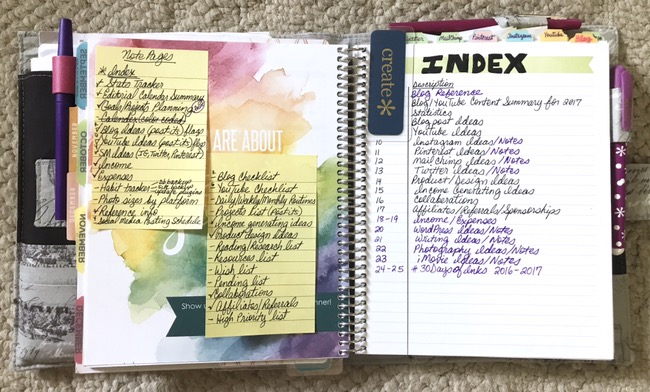 Note Pages
* Index
✓ Stats Tracker
✓ Editorial Calendar Summary
Goals/Projects Planning
✓ Calendar (color coded)
✓ Blog ideas (post its) flags
✓ YouTube ideas (post its) flags
✓ SM ideas (IG, Twitter, Pinterest)
✓ Income
✓ Expenses
- Habit tracker
- Photo sizes by platform
✓ Reference info
Social Media Posting Schedule
SEPTEMBER
OCTOBER
NOVEMBER
ARE ABOUT
- Blog Checklist
YouTube Checklist
- Daily/Weekly/Monthly Routines
- Projects list (Post its)
✓ Income generating ideas
✓ Product design ideas
- Reading/Research list
- Resources list
- Wish list
- Pending list
✓ Collaborations
✓ Affiliates/Referrals
- High Priority list
Show
nner!
create
*
MailChimp
Pinterest
Instagram
YouTube
Blog
INDEX
Description
Blog Reference
Blog/YouTube Content Summary for 2017
Statistics
Blog post Ideas
YouTube Ideas
10 Instagram Ideas/Notes
11 Pinterest Ideas/Notes
12 MailChimp Ideas/Notes
13 Twitter Ideas/Notes
14 Product/Design Ideas
15 Income Generating Ideas
16 Collaborations
17 Affiliates/Referrals/Sponsorships
18-19 Income/Expenses
20 WordPress Ideas/Notes
21 Writing Ideas/Notes
22 Photography Ideas/Notes
23 iMovie Ideas/Notes
24-25 #30DaysofLinks 2016-2017